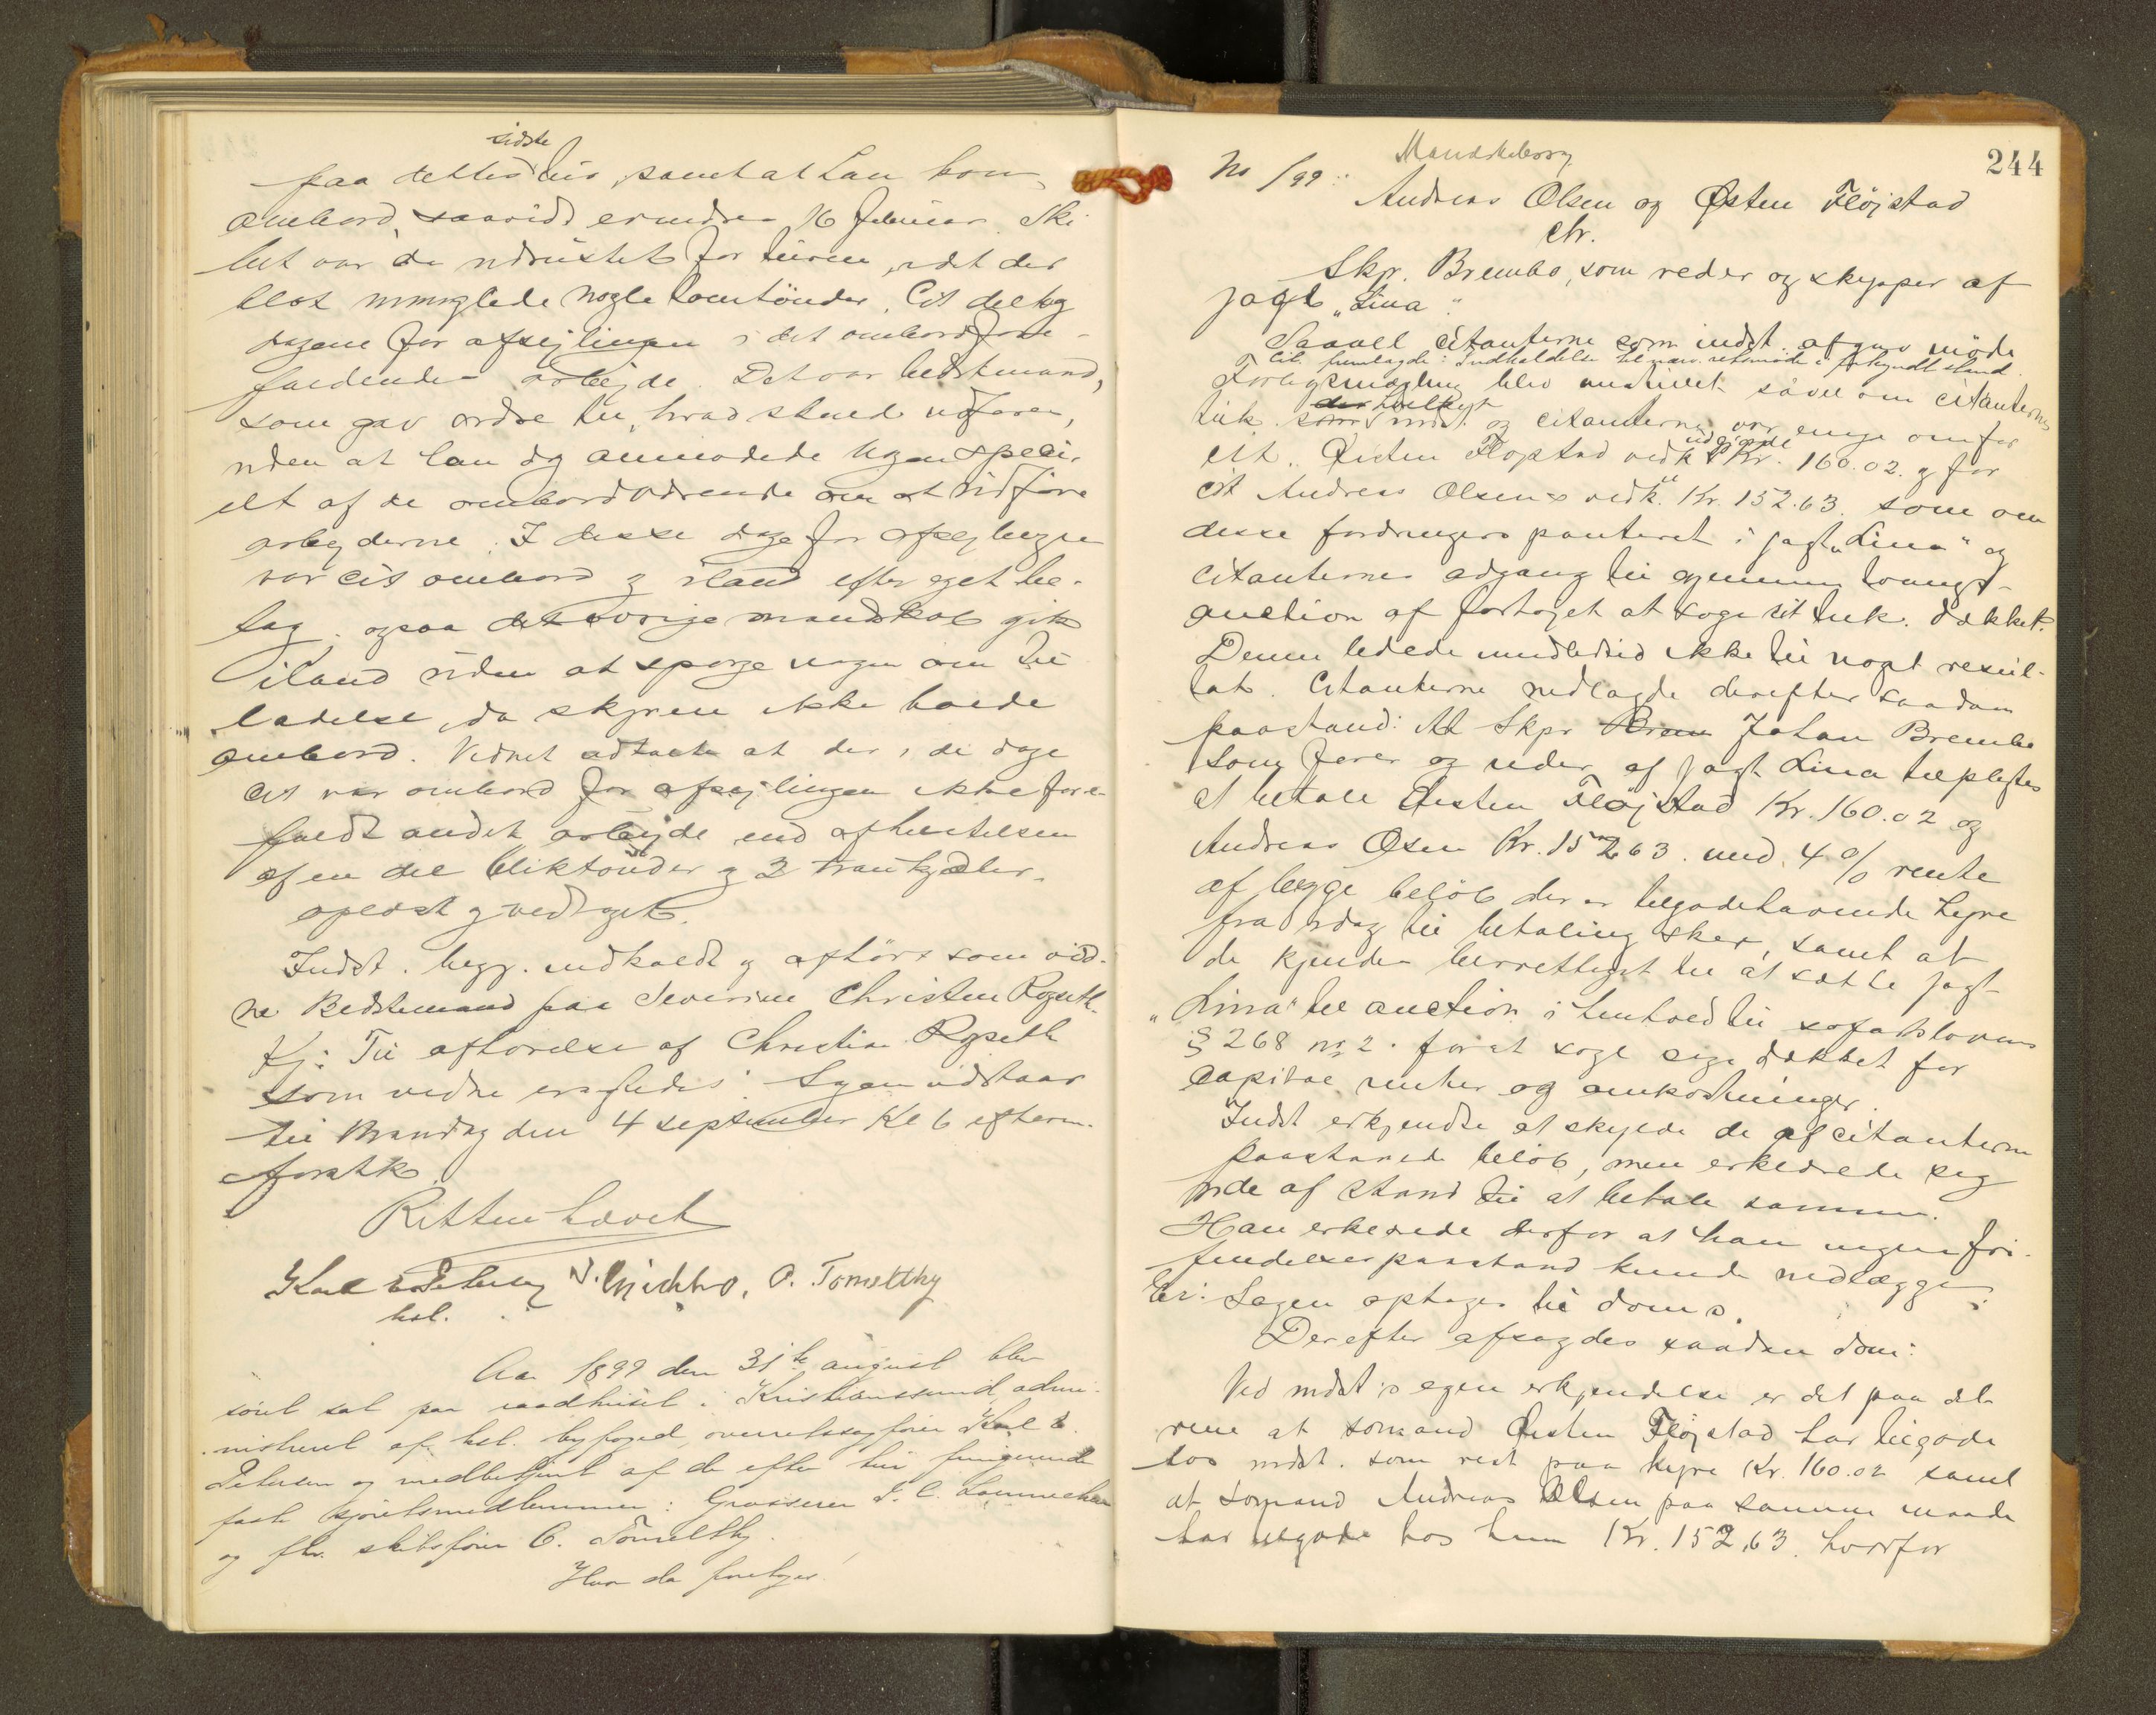 sidste
paa dettes hus, samt at han kom
ombord, saavidt erindres 16 februar. Ski
bet var da udrustet for turen, idet der
blot manglede nogle tomtønder. Cit deltog
dagene før afsejlingen i det ombord fore-
faldende arbejde. Det var bedstmand,
som gav ordre til, hvad skulde udføres,
uden at han dog anmodede nogen speci-
elt af de ombordværende om at udføre
arbejderne. I disse dage før afsejlingen
var cit ombord og iland efter eget be-
hag. ogsaa det øvrige mandskab gik
iland uden at spørge nogen om til-
ladelse, da skipperen ikke boede
ombord. Vidnet at der i de dage
cit var ombord før afsejlingen ikke fore-
faldt andet arbejde end afhentelsen
af en del bliktønder og 2 trankjedler.
oplæst og vedtaget.
Indst. begj. indkaldt og afhørt som vid-
ne Bedstemand paa Severine Christen Rogseth
Kj: Til afhørelse af Christian Rogseth
som vidne Sagen udstaar
til Mandag den 4 september Kl 6 efterm.
forstk
Ritten hævet
Karl Petersen N. O. Tomelthy
kst.
Aar 1899 den 31te august blev
søret sat paa raadhuset i Kristianssund, admi-
nistreret af kst. byfoged, overretssagfører Karl
Petersen og medbetjent af de efter tur fungerende
faste sjøretsmedlemmer: Grosserer
og fhv. skibsfører O. Tomelthy.
Hvor da foretoges
Mandskabssag 244
No /99:
Andreas Olsen og Østen Fløjstad
ctr.
Skpr. Brembo, som reder og skipper af
jagt "Lina".
Saavel citanterne som indst. afgav møde
Cit. fremlagde: Indkaldelse til nærv. retsmøde i forkyndt stand.
Forligsmægling blev anstillet såvel om citanternes
der hvilket
tilk. som indst. og citanterne var enige om for
udgjorde
cit. Østen Flöjstad vedk. Kr. 160.02. og for
cit Andreas Olsens vedk. Kr. 152.63. som om
disse fordringers panteret i jagt "Lina" og
citanternes adgang til gjennem tvangs-
auction af fartøjet at søge sit tilk. dækket.
Denne ledede imidlertid ikke til noget resul-
tat. Citanterne nedlagde derefter saadan
paastand: At Skpr Bram Johan Brembo
som fører og reder af jagt Lina tilpligtes
at betale Østen Fløjstad Kr. 160.02 og
Andreas Olsen Kr. 152.63. med 4% rente
af begge beløb der er tilgodehavende hyre
fra idag til betaling sker, samt at
de kjendes berettiget til at sætte jagt
"Lina" til auction i henhold til sjøfartslovens
§ 268 no 2. for at søge sig dækket for
capital renter og omkostninger.
Indst erkjendte at skylde de af citanterne
paastævnte beløb, men erklærede sig
ude af stand til at betale samme.
Han erklærede derfor at han ingen fri-
findelsespaastand kunde nedlægge.
Sagen optages til doms.
Derefter afsagdes saadan dom:
Ved indst's egen erkjendelse er det paa det
rene at sømand Østen Fløjstad har tilgode
hos indst. som rest paa hyre Kr. 160.02 samt
at sømand Andreas Olsen paa samme maade
har tilgode hos ham Kr. 152,63. hvorfor